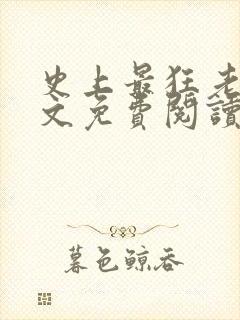 史上最狂老
文免費閱讀
暮色鲸吞